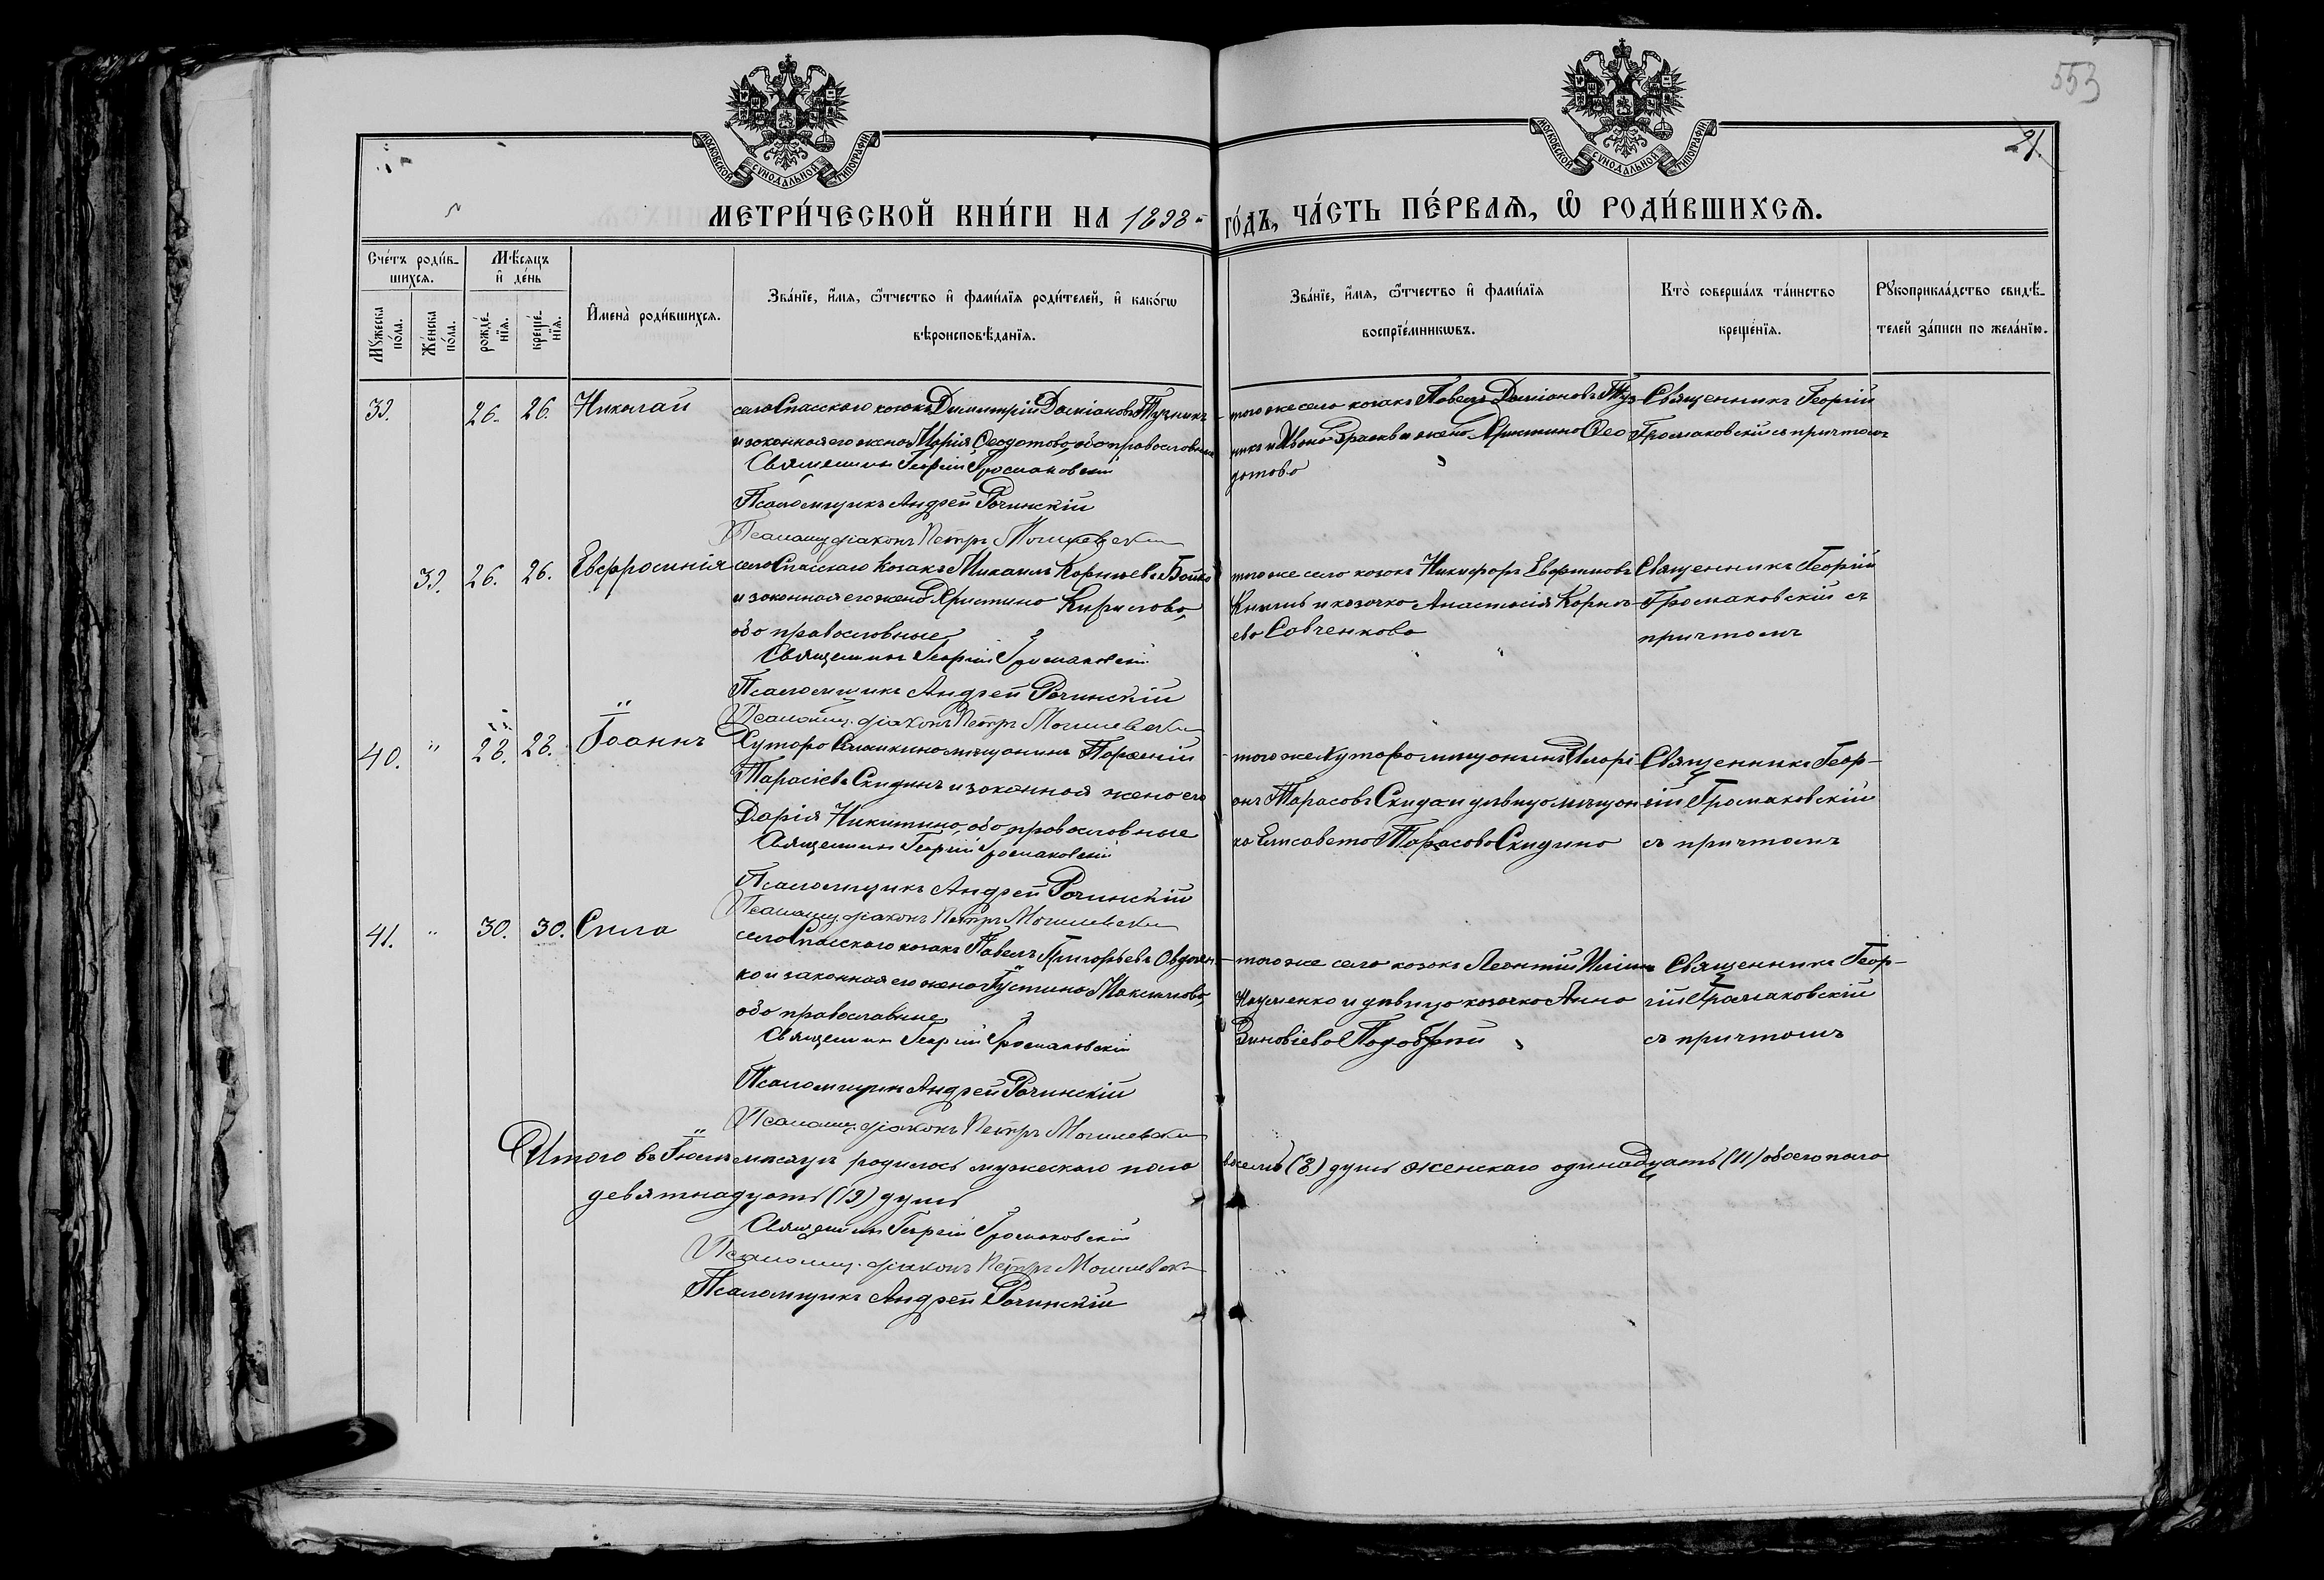 553
21.
МОСКОВСКОЙ СѴНОДАЛЬНОЙ ТИПОГРАФІИ
МОСКОВСКОЙ СѴНОДАЛЬНОЙ ТИПОГРАФІИ
МЕТРИ́ЧЕСКОЙ КНИ́ГИ НА 1898й го́дъ, ЧА́СТЬ ПЕ́РВАѦ, Ѿ РОДИ́ВШИХСѦ.
Сче́тъ роди́в-
шихсѧ.
Мѣ́сѧцъ
и҆ де́нь
Мꙋжеска
по́ла.
Же́нска
по́ла.
рожде́-
нїѧ.
креще́-
нїѧ.
И҆мена̀ роди́вшихсѧ.
Зва́нїе, и҆́мѧ, ѻ҆́тчество и҆ фами́лїѧ роди́телей, и҆ како́гѡ
вѣроисповѣ́данїѧ.
Зва́нїе, и҆́мѧ, ѻ҆́тчество и҆ фами́лїѧ
воспрїе́мникѡвъ.
Кто̀ соверша́лъ та́инство
креще́нїѧ.
Рꙋкоприкла́дство свидѣ́-
телей за́писи по жела́нїю.
39. 26. 26. Николай
села Спасскаго козакъ Димитрій Даміановъ Тузникъ
и законная его жена Марія Ѳеодотова, оба православные
Священникъ Георгій Громаковскій
Псаломщикъ Андрей Рачинскій
Псаломщ. діаконъ Петръ Могилевскій
того же села козакъ Павелъ Даміановъ Туз-
никъ и жена Христина Ѳео-
дотова
Священникъ Георгій
Громаковскій съ причтомъ
39. 26. 26. Евфросинія
села Спасскаго козакъ Михаилъ Корніевъ Бойко
и законная его жена Христина Кирилова,
оба православные
Священникъ Георгій Громаковскій
Псаломщикъ Андрей Рачинскій
Псаломщ. діаконъ Петръ Могилевскій
того же села козакъ Никифоръ
и козачка Анастасія Корніе-
ева Савченкова
Священникъ Георгій
Громаковскій съ
причтомъ
40. " 28. 28. Іоаннъ
Хутора мещанинъ
Тарасіевъ Скидинъ и законная жена его
Дарія Никитина, оба православные
Священникъ Георгій Громаковскій
Псаломщикъ Андрей Рачинскій
Псаломщ. діаконъ Петръ Могилевскій
того же хутора мещанинъ Иларі-
онъ Тарасовъ Скида и девица мещан-
ка Елисавета Тарасова Скидина
Священникъ Геор-
гій Громаковскій
съ причтомъ
41. " 30. 30. Сила
села Спасскаго козакъ Павелъ Григорьевъ Овдіен-
ко и законная его жена Іустина Максимова,
оба православные
Священникъ Георгій Громаковскій
Псаломщикъ Андрей Рачинскій
Псаломщ. діаконъ Петръ Могилевскій
того же села козакъ Леонтій
Науменко и девица козачка Анна
Зиновіева
Священникъ Геор-
гій Громаковскій
съ причтомъ
Итого въ Іюле месяце родилось мужескаго пола восемь (8) душъ женскаго одинадцать (11) обоего пола
девятнадцать (19) душъ
Священникъ Георгій Громаковскій
Псаломщ. діаконъ Петръ Могилевскій
Псаломщикъ Андрей Рачинскій